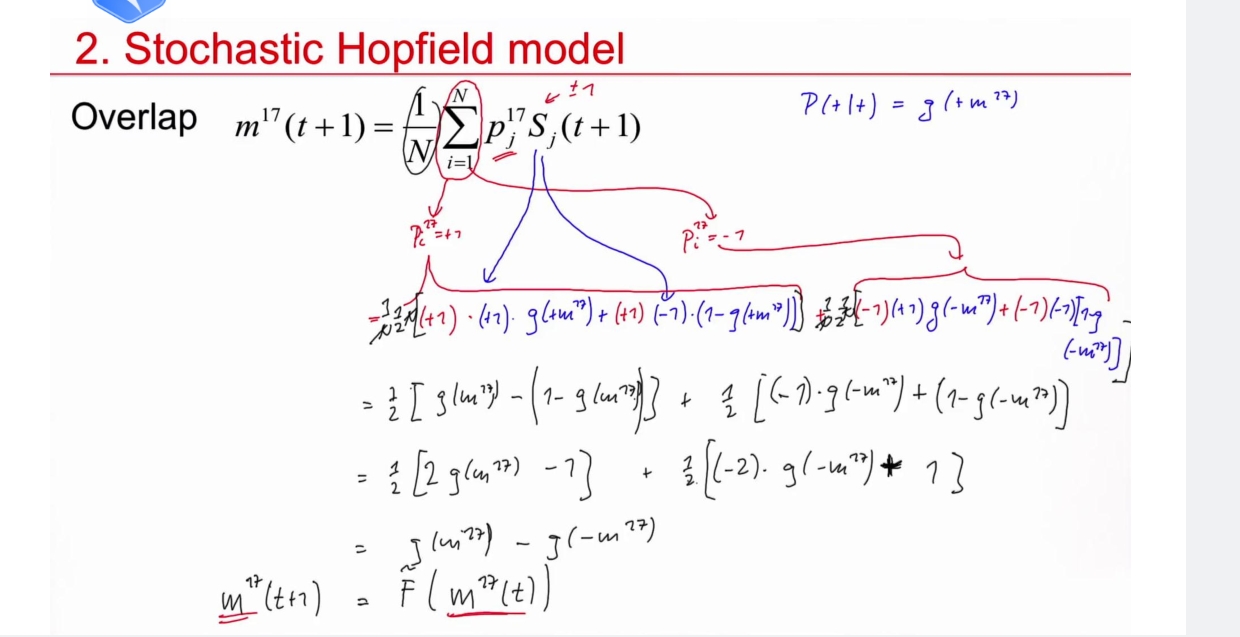 2. Stochastic Hopfield model
Overlap m^17(t+1) = 1/N ∑_{i=1}^{N} p_j^17 S_j(t+1)
± 1
P(+|+) = g(+m^17)
P_i^17 = +1
P_i^17 = -1
= 1/N 1/2 N [(+1) · (+1) · g(+m^17) + (+1) (-1) · (1-g(+m^17))] + 1/N 1/2 N [(-1)(+1) g(-m^17) + (-1)(-1)[1-g
(-m^17)]]
= 1/2 [g(m^17) - (1 - g(m^17))] + 1/2 [(-1) · g(-m^17) + (1-g(-m^17))]
= 1/2 [2 g(m^17) - 1] + 1/2 [(-2) · g(-m^17) + 1]
= g(m^17) - g(-m^17)
m^17(t+1) = F̃(m^17(t))